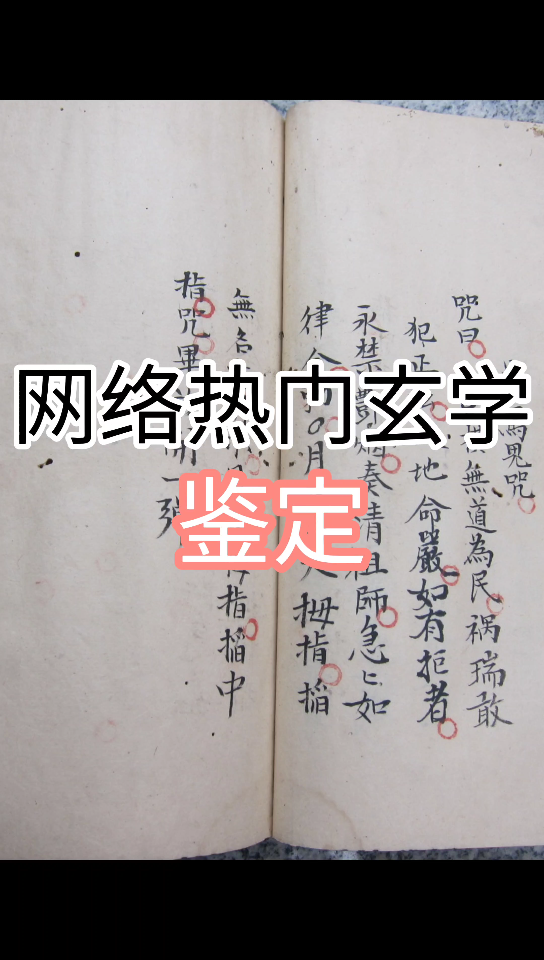 网络热门玄学
鉴定
鬼咒
咒曰 無道為民祸瑞敢
犯正 地命嚴如有拒者
永禁酆 奏請祖師急匕如
律令 月 拇指掐
無名 指掐中
指咒畢 一張